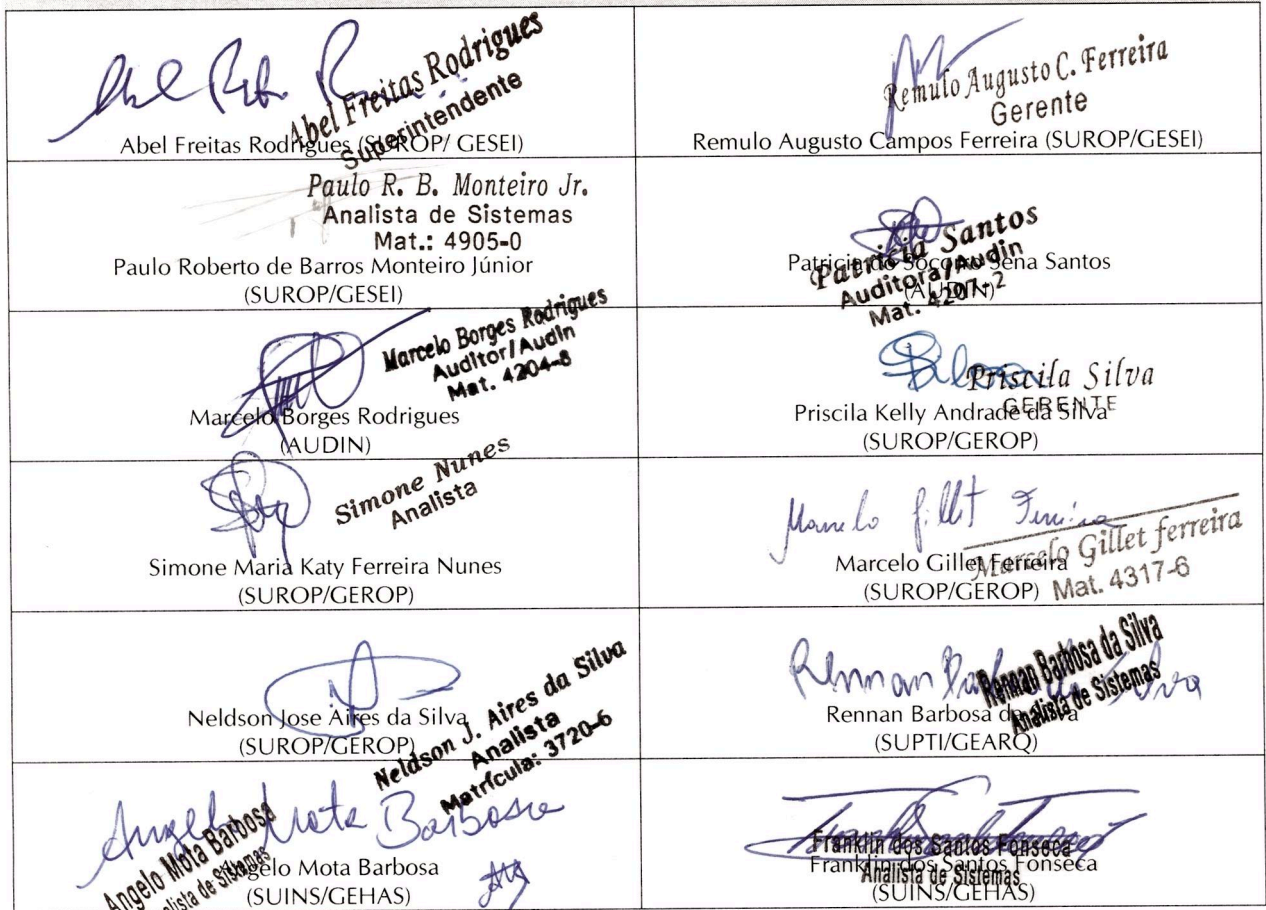 Abel Freitas Rodrigues
Superintendente
Abel Freitas Rodrigues (SUROP/ GESEI)
Remulo Augusto C. Ferreira
Gerente
Remulo Augusto Campos Ferreira (SUROP/GESEI)
Paulo R. B. Monteiro Jr.
Analista de Sistemas
Mat.: 4905-0
Paulo Roberto de Barros Monteiro Júnior
(SUROP/GESEI)
Patricia Santos
Auditora/Audin
Mat. 4207-2
Patricia do Socorro Sena Santos
(AUDIN)
Marcelo Borges Rodrigues
Auditor/Audin
Mat. 4204-8
Marcelo Borges Rodrigues
(AUDIN)
Priscila Silva
GERENTE
Priscila Kelly Andrade da Silva
(SUROP/GEROP)
Simone Nunes
Analista
Simone Maria Katy Ferreira Nunes
(SUROP/GEROP)
Marcelo Gillet Ferreira
Marcelo Gillet ferreira
Mat. 4317-6
Marcelo Gillet Ferreira
(SUROP/GEROP)
Neldson J. Aires da Silva
Analista
Matrícula: 3720-6
Neldson Jose Aires da Silva
(SUROP/GEROP)
Rennan Barbosa da Silva
Rennan Barbosa da Silva
Analista de Sistemas
Rennan Barbosa da Silva
(SUPTI/GEARQ)
Angelo Mota Barbosa
Angelo Mota Barbosa
Analista de Sistemas
Angelo Mota Barbosa
(SUINS/GEHAS)
Franklin dos Santos Fonseca
Analista de Sistemas
Franklin dos Santos Fonseca
(SUINS/GEHAS)